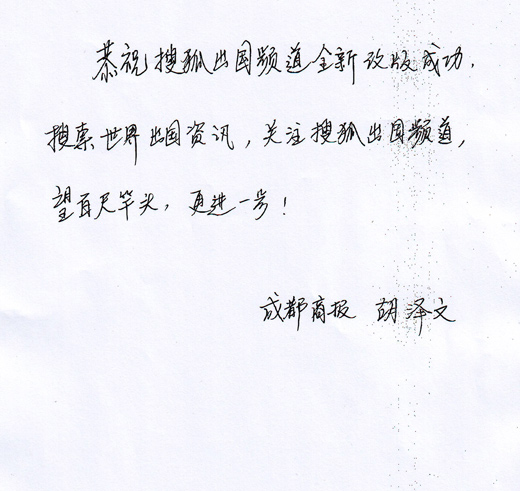 恭祝搜狐出国频道全新改版成功.
搜索世界出国资讯,关注搜狐出国频道,
望百尺竿头,更进一步!
成都商报 胡泽文